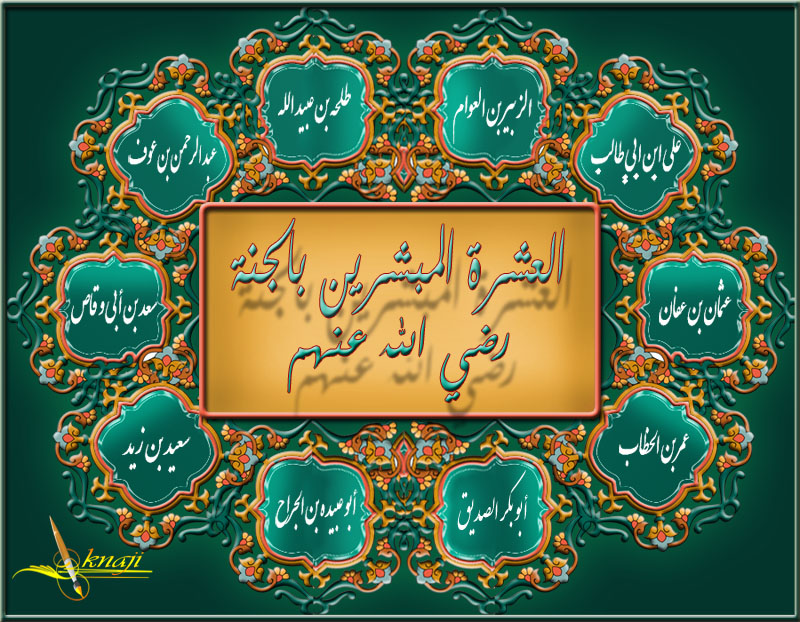 العشرة المبشرين بالجنة
رضي الله عنهم
أبو بكر الصديق
عمر بن الخطاب
عثمان بن عفان
علي ابن ابي طالب
الزبير بن العوام
طلحه بن عبيد الله
عبد الرحمن بن عوف
سعد بن أبي وقاص
سعيد بن زيد
أبو عبيده بن الجراح
knaji